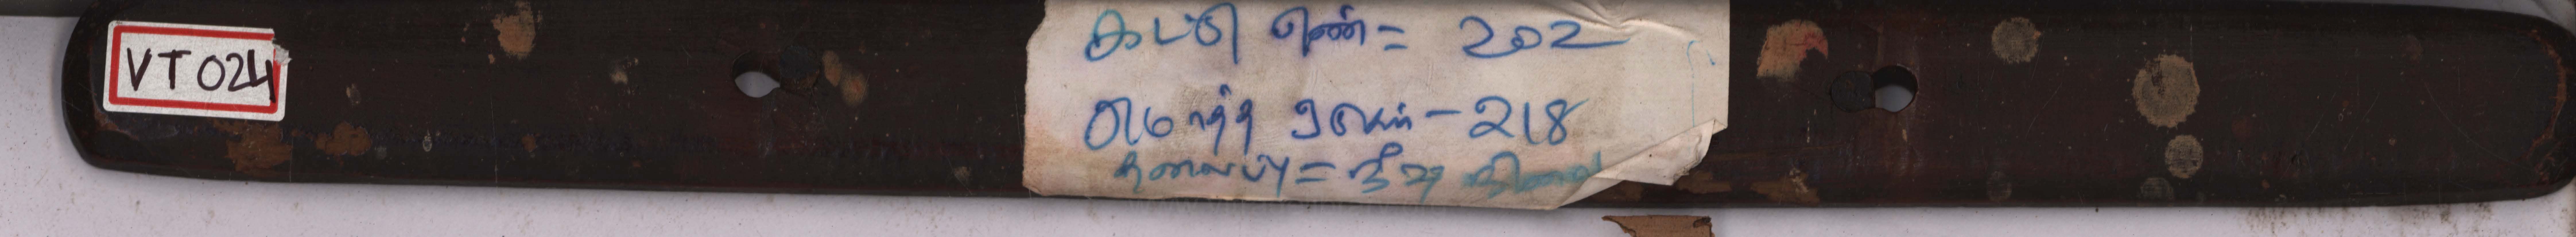 VT 024
கட்டு எண் = 202
மொத்த ஓலைகள் - 218
தலைப்பு =